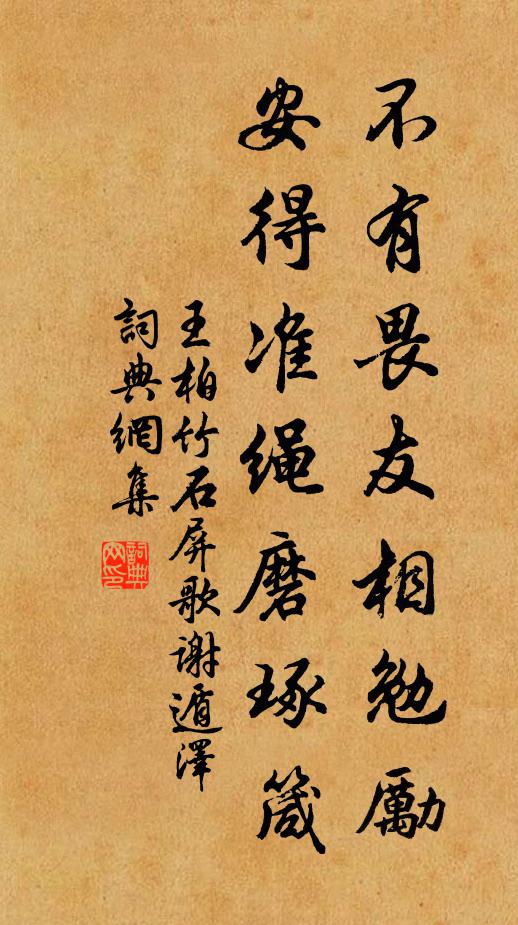 不有畏友相勉勵
安得准绳磨琢箴
王柏竹石屏歌谢遁澤
詞典網集
詞典網印